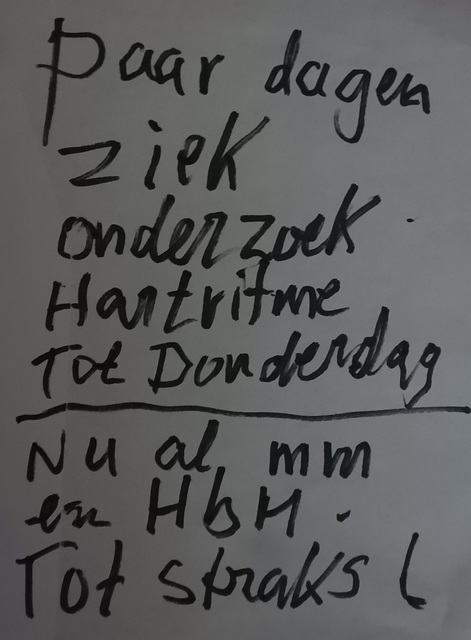 Paar dagen
ziek
onderzoek
Hartritme
Tot Donderdag
Nu al mm
en HbH.
Tot straks (